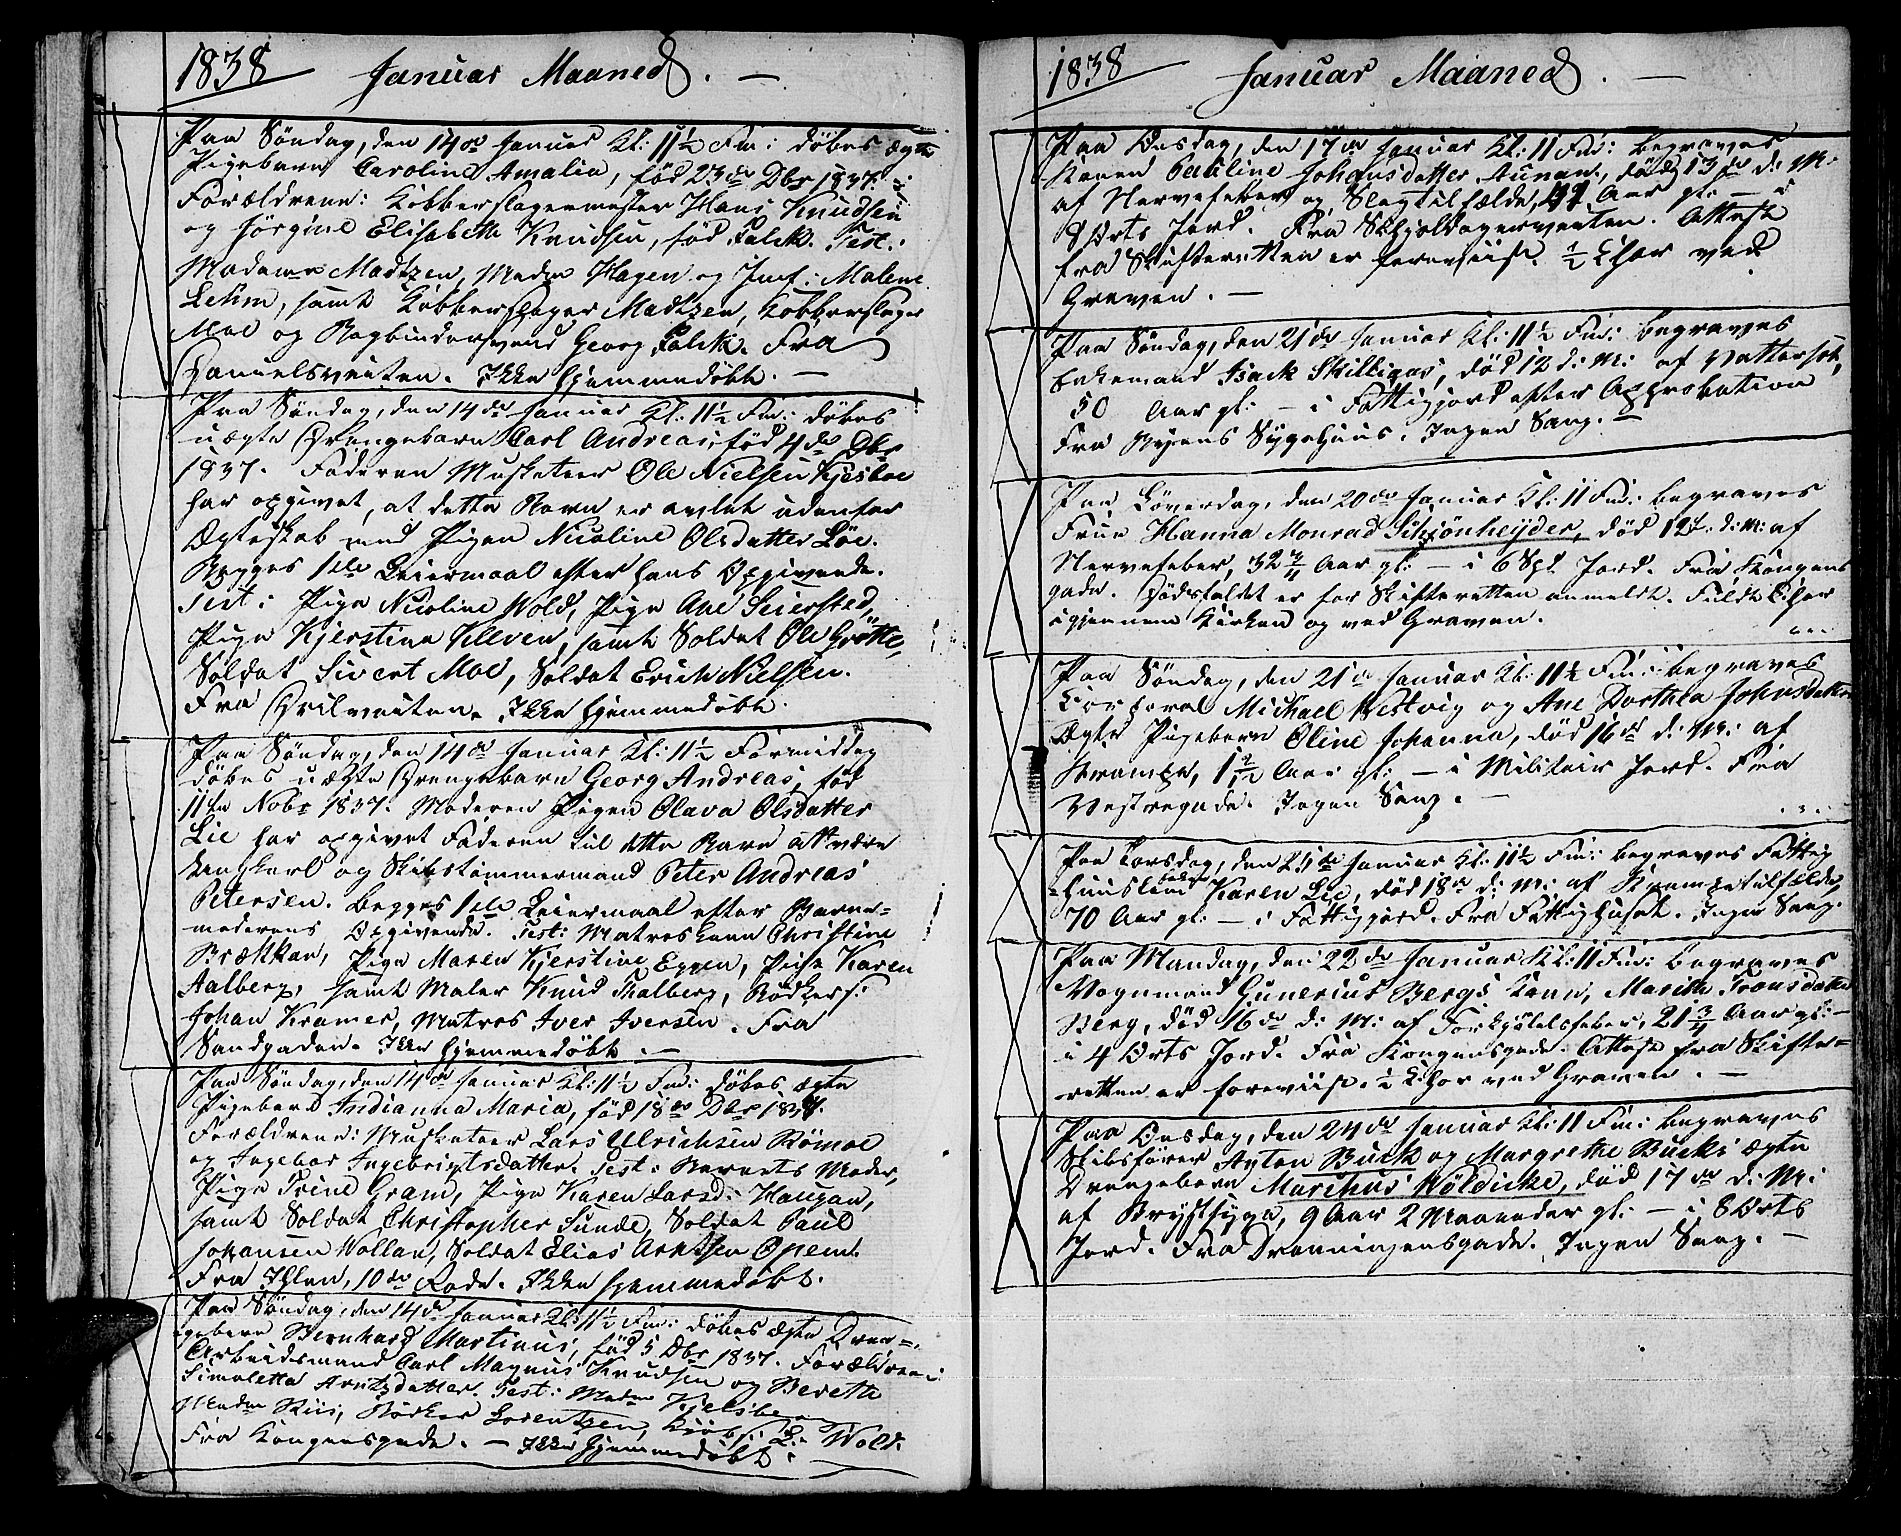 1838 Januar Maaned. —
Paa Søndag, den 14de Januar Kl: 11½ Fm: døbes ægte
Pigebarn Caroline Amalia, fød 23de Dbr 1837.
Forældrene: Kobberslagermester Hans Knudsen
og Jørgine Elisabeth Knudsen, fød Falck. Test:
Madame Madtzen, Madm Hagen og Jmf: Malene
Lehm, samt Kobberslager Madtzen, Kobberslager
Moe og Bogbindersvend Georg Falck. Fra
Danielsveiten. Ikke hjemmedøbt. —
Paa Søndag, den 14de Januar Kl: 11½ Fm: døbes
uægte Drengebarn Carl Andreas, fød 4de Dbr
1837. Faderen Musketeer Ole Nielsen Kjesboe
har opgivet, at dette Barn er avlet udenfor
Ægteskab med Pigen Nicoline Olsdatter Löe.
Begges 1ste Leiermaal efter hans Opgivende.
Test: Pige Nicoline Wold, Pige Ane Seiersted,
Pige Kjerstina Kleven, samt Soldat Ole Grötte,
Soldat Sivert Moe, Soldat Erich Nielsen.
Fra Hvilveiten. Ikke hjemmedøbt.
Paa Søndag, den 14de Januar Kl: 11½ Formiddag
døbes uægte Drengebarn Georg Andreas, fød
11te Nobr 1837. Moderen Pigen Olava Olsdatter
Lie har opgivet Faderen til dette Barn att være
Ungkarl og Skibstømmermand Peter Andreas
Petersen. Begges 1ste Leiermaal efter Barne-
moderens Opgivende. Test: Matroskone Christine
Brækkan, Pige Maren Kjerstine Eggen, Pige Karen
Aalberg, samt Maler Knud Thalberg, Bødkers:
Johan Kramer, Matros Iver Iversen. Fra
Sandgaden. Ikke hjemmedøbt. —
Paa Søndag, den 14de Januar Kl: 11½ Fm: døbes ægte
Pigebarn Indianna Maria, fød 18de Dbr 1837.
Forældrene: Musketeer Lars Ulrichsen Römoe
og Ingebor Ingebrigtsdatter. Test: Barnets Moder,
Pige Trine Gram, Pige Karen Larsd: Haugan,
samt Soldat Christopher Sunde, Soldat Paul
Johansen Wollan, Soldat Elias Arntsen Opem.
Fra Ihlen, 10de Rode. Ikke hjemmedøbt.
Paa Søndag, den 14de Januar Kl: 11½ Fm: døbes ægte Dren-
gebarn Bernhard Martinus, fød 5 Dbr 1837. Forældrene:
Arbeidsmand Carl Magnus Knudsen og Bereth
Simoletta Arntzdatter. Test: Madm Kjelsberg
Madm Riis, Bødker Lorentzen, Kjøbs: L: Wold.
Fra Kongensgade. — Ikke hjemmedøbt.
1838 Januar Maaned. —
Paa Onsdag, den 17de Januar Kl: 11 Fm: begraves
Konen Pauline Johansdatter Aunan, død 13de d: M:
af Nervefeber og Slagtilfælde, 41 Aar gl: — i
8 Orts Jord. Fra Skjoldagerveiten. Attest
fra Skifteretten er foreviist. ½ Chor ved
Graven. —
Paa Søndag, den 21de Januar Kl: 11½ Fm: begraves
Enkemand Isack Skilligas, død 12 d: M: af Vattersot,
50 Aar gl: — i Fattigjord efter Approbation
Fra Byens Sygehuus. Ingen Sang. —
Paa Løverdag, den 20de Januar Kl: 11 Fm: begraves
Frue Hanna Monrad Schjönheyder, død 12te d: M: af
Nervefeber, 32¾ Aar gl: — i 6 Spd Jord. Fra Kongens
gade. Dødsfaldet er for Skifteretten anmeldt. Fuldt Chor
igjennem Kirken og ved Graven.
Paa Søndag, den 21de Januar Kl: 11½ Fm: begraves
Corporal Michael Westvig og Ane Dorthea Johnsdatters
Ægte Pigebarn Oline Johanna, død 16de d: M: af
Krampe, 1 Aar gl: — i Militair Jord. Fra
Vestregade. Ingen Sang. —
Paa Torsdag, den 25de Januar Kl: 11½ Fm: begraves Fattig
-huuslem Karen Lie, død 18de d: M: af Krampetilfælde
70 Aar gl: — i Fattigjord. Fra Fattighuset. Ingen Sang.
Paa Mandag, den 22de Januar Kl: 11 Fm: begraves
Vognmand Gunerius Bergs Kone, Marith Tronsdatter
Berg, død 16de d: M: af Forkjølelsfeber, 21¾ Aar gl: —
i 4 Orts Jord. Fra Kongensgade. Attest fra Skifte-
retten er foreviist. ½ Chor ved Graven. —
Paa Onsdag, den 24de Januar Kl: 11 Fm: begraves
Skibsfører Anton Buck og Margrethe Bucks ægte
Drengebarn Marthus Wöldicke, død 17de d: M:
af Brystsyge, 9 Aar 2 Maaneder gl: — i 8 Orts
Jord. Fra Dronningensgade. Ingen Sang. —